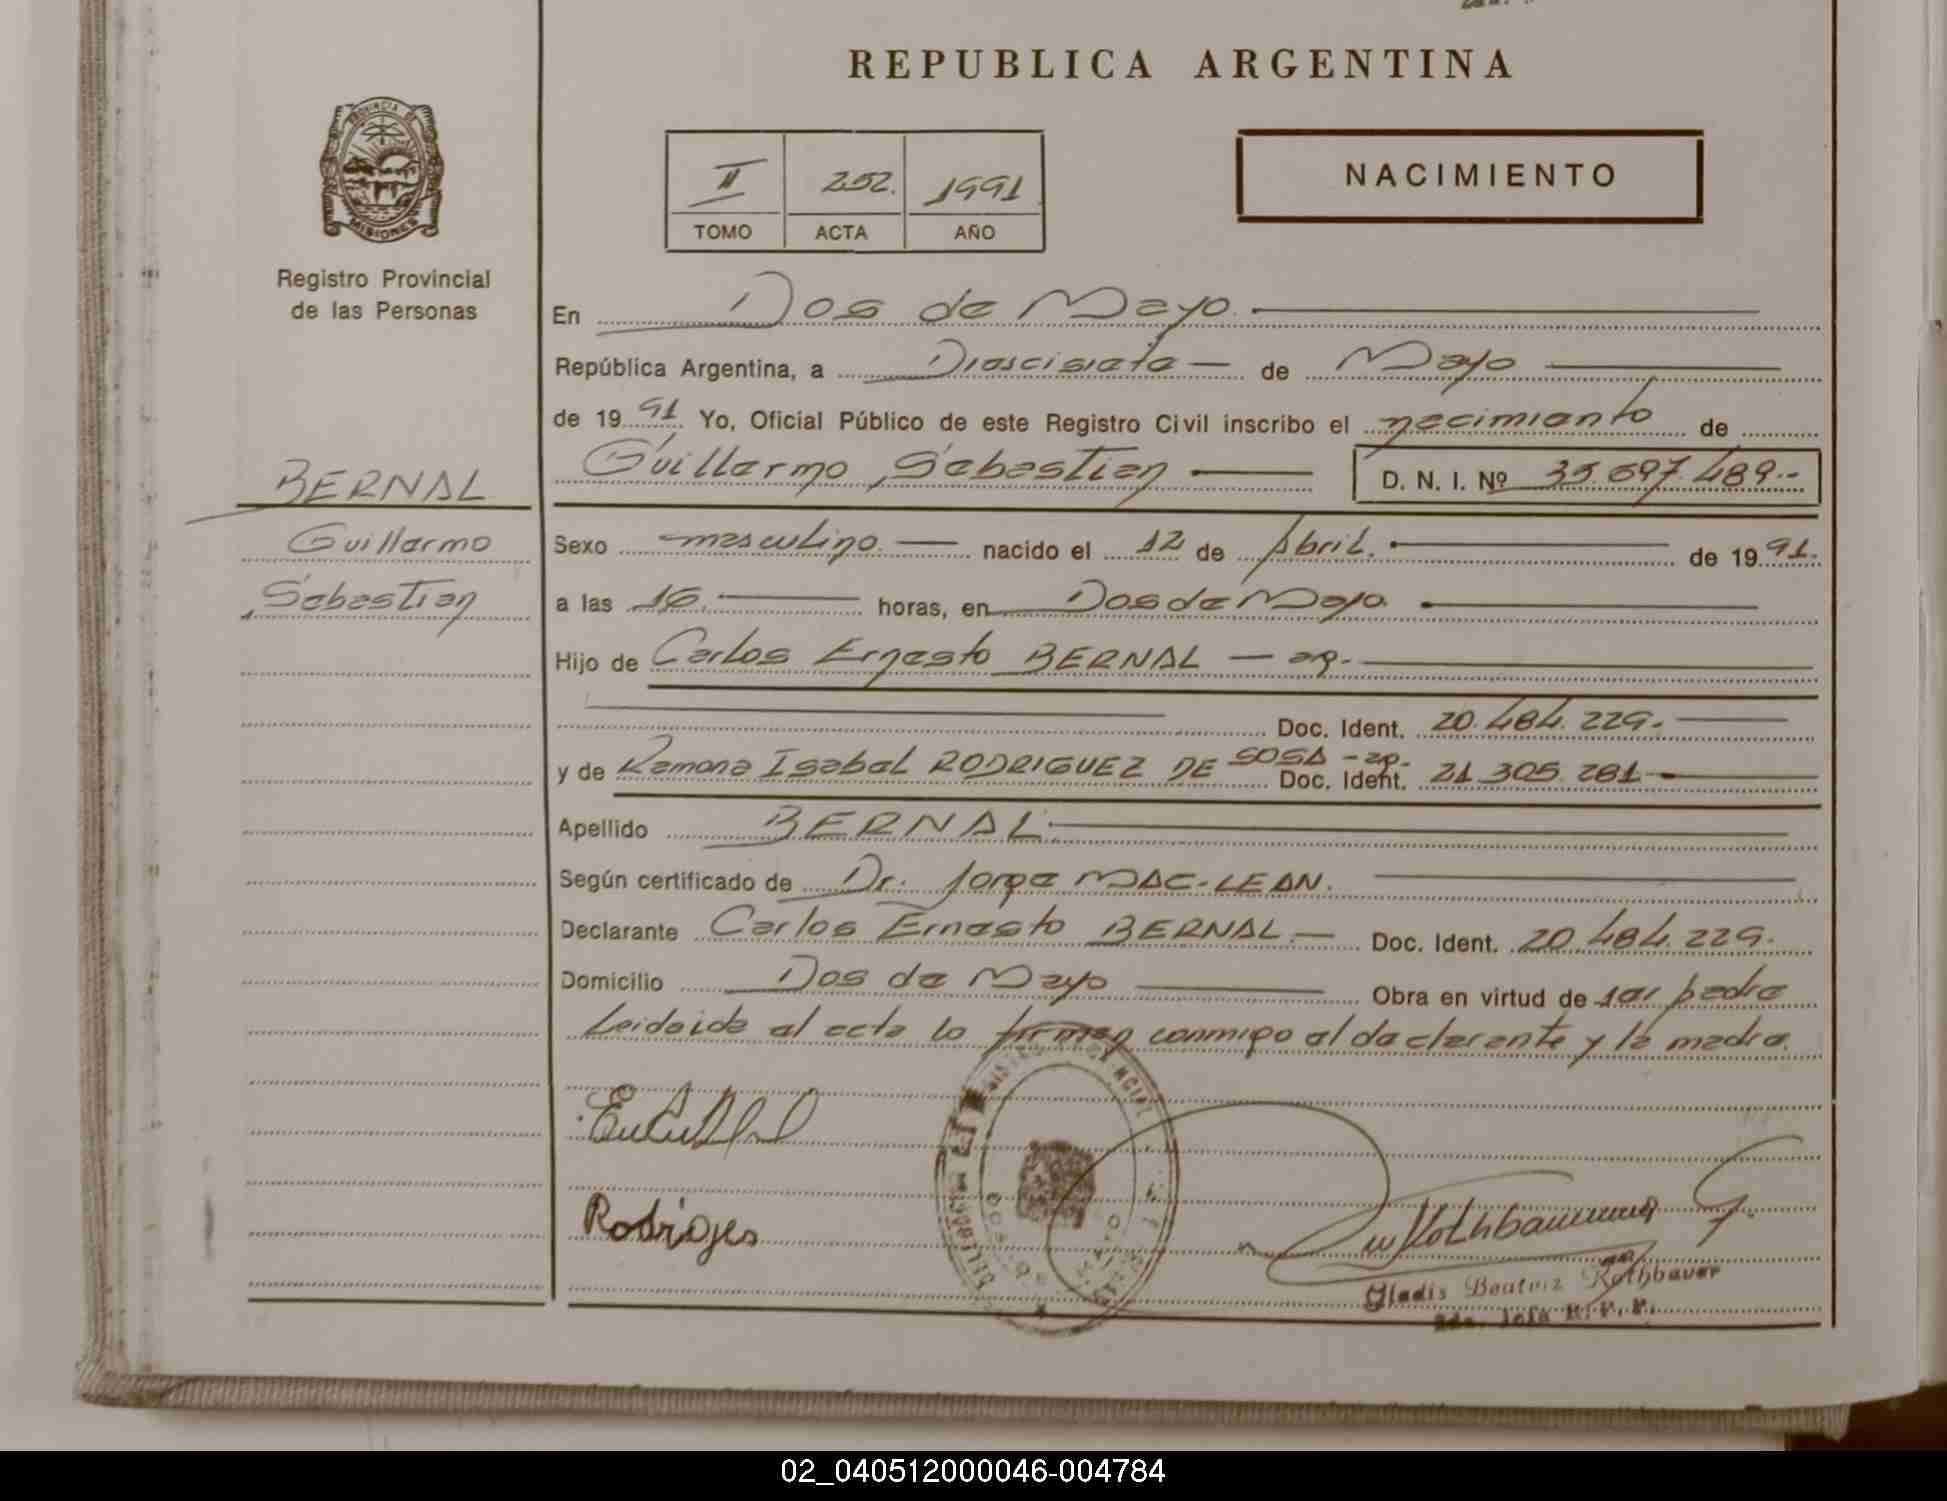 REPUBLICA ARGENTINA
PROVINCIA DE
MISIONES
Registro Provincial
de las Personas
II 252. 1991
TOMO ACTA AÑO
NACIMIENTO
En Dos de Mayo.
República Argentina, a Diescisiete de Mayo
de 1991 Yo, Oficial Público de este Registro Civil inscribo el nacimiento de
Guillermo Sebastian D. N. I. Nº 35.697.489.-
BERNAL
Guillermo
Sebastian
Sexo masculino. nacido el 12 de Abril. de 1991.
a las 16. horas, en Dos de Mayo.
Hijo de Carlos Ernesto BERNAL — arg.
Doc. Ident. 20.484.229.
y de Ramona Isabel RODRIGUEZ DE SOSA - arg. Doc. Ident. 21.305.281
Apellido BERNAL.
Según certificado de Dr. Jorge MAC-LEAN.
Declarante Carlos Ernesto BERNAL.— Doc. Ident. 20.484.229.
Domicilio Dos de Mayo Obra en virtud de ser padre
Leida el acta lo firman conmigo el declarante y la madre.
Rodriges
Rothbauer
Gladis Beatriz Rothbauer
Jefa R.P.P.
02_040512000046-004784